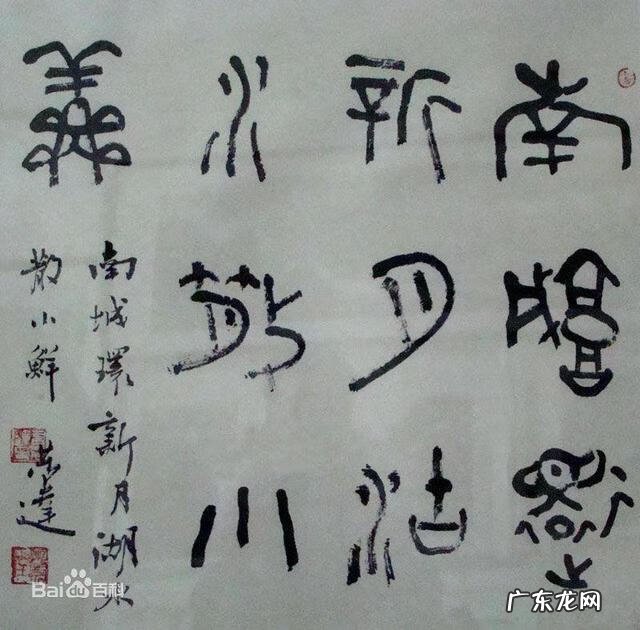 南城環
新月湖
水散小
鮮
南城環新月湖水
散小鮮
達
Bai百科
广东龙网